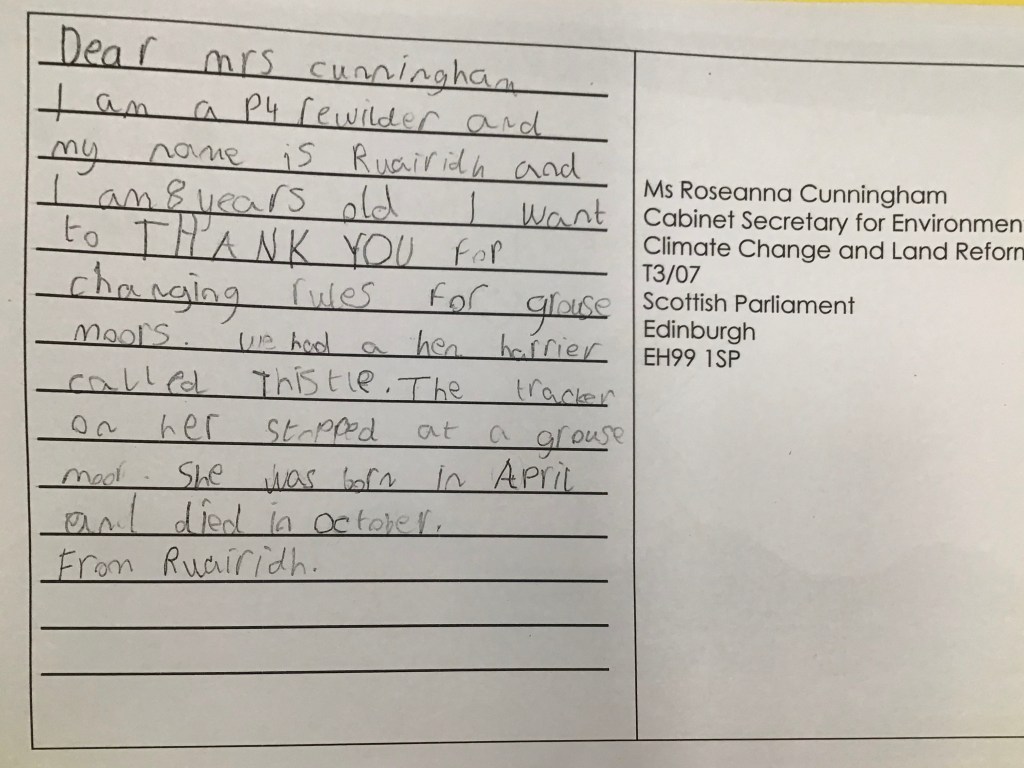 Dear mrs cunningham
I am a P4 rewilder and
my name is Ruairidh and
I am 8 years old I want
to THANK YOU for
changing rules for grouse
moors. we had a hen harrier
called Thistle. The tracker
on her stopped at a grouse
moor. She was born in April
and died in october.
From Ruairidh.
Ms Roseanna Cunningham
Cabinet Secretary for Environmen
Climate Change and Land Reform
T3/07
Scottish Parliament
Edinburgh
EH99 1SP